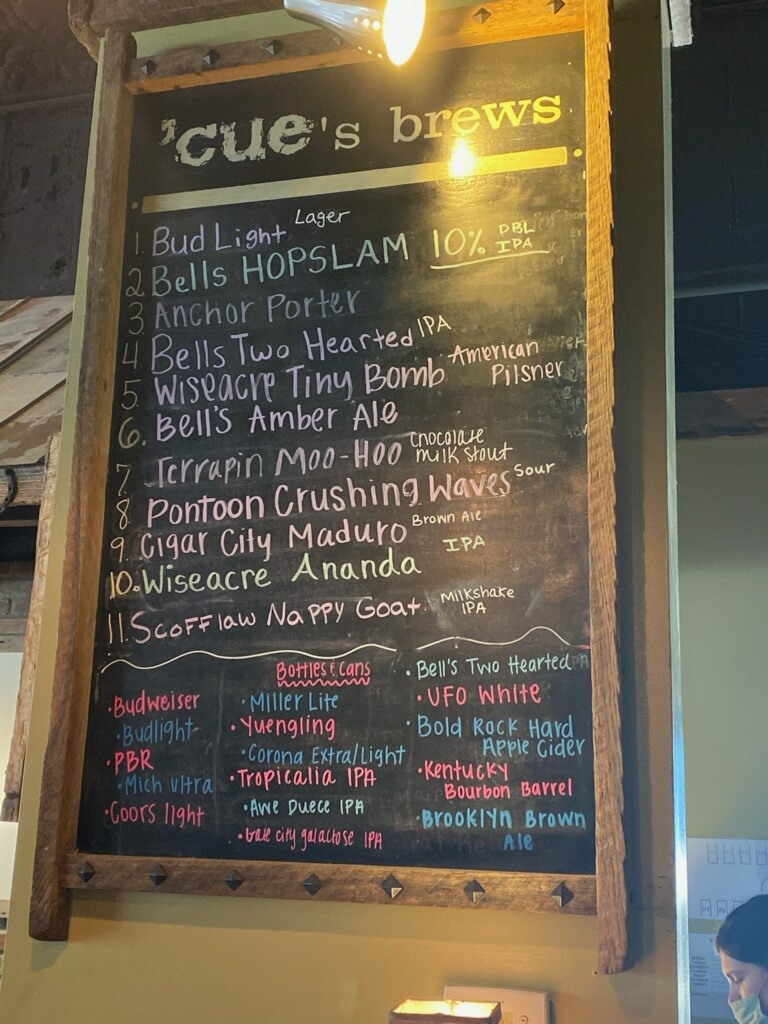 'cue's brews
1. Bud Light Lager
2 Bells HOPSLAM 10% DBL IPA
3. Anchor Porter
4 Bells Two Hearted IPA
5. Wiseacre Tiny Bomb American Pilsner
6. Bell's Amber Ale
7. Terrapin Moo-Hoo Chocolate milk stout
8. Pontoon Crushing Waves Sour
9. Cigar City Maduro Brown Ale
10. Wiseacre Ananda IPA
11. Scofflaw Nappy Goat. Milkshake IPA
Bottles & Cans
• Budweiser
• Budlight
• PBR
• Mich ultra
• Coors light
• Miller Lite
• Yuengling
• Corona Extra/Light
• Tropicalia IPA
• Awe Duece IPA
• Gate city galactose IPA
• Bell's Two Hearted IPA
• UFO White
• Bold Rock Hard
Apple Cider
• Kentucky
Bourbon Barrel
• Brooklyn Brown
Ale